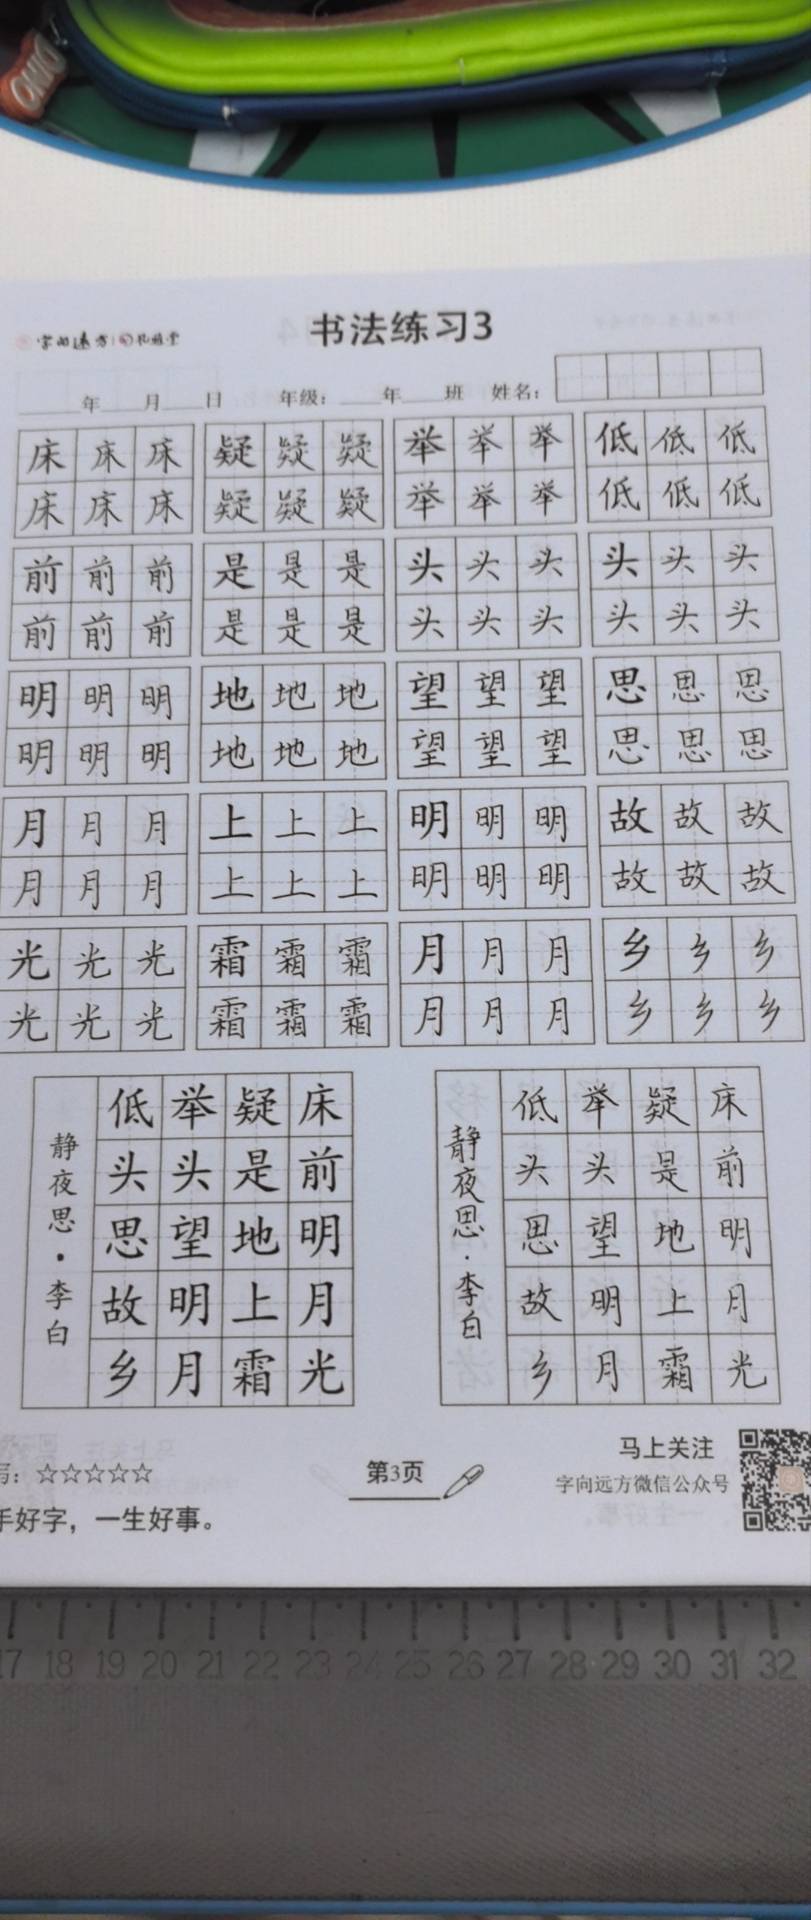 OHO
字向远方
书法练习3
年 月 日 年级: 年 班 姓名:
床 床 床 疑 疑 疑 举 举 举 低 低 低
床 床 床 疑 疑 疑 举 举 举 低 低 低
前 前 前 是 是 是 头 头 头 头 头 头
前 前 前 是 是 是 头 头 头 头 头 头
明 明 明 地 地 地 望 望 望 思 思 思
明 明 明 地 地 地 望 望 望 思 思 思
月 月 月 上 上 上 明 明 明 故 故 故
月 月 月 上 上 上 明 明 明 故 故 故
光 光 光 霜 霜 霜 月 月 月 乡 乡 乡
光 光 光 霜 霜 霜 月 月 月 乡 乡 乡
床前明月光
疑是地上霜
举头望明月
低头思故乡
静夜思·李白
床前明月光
疑是地上霜
举头望明月
低头思故乡
静夜思·李白
写:☆☆☆☆☆
手好字,一生好事。
第3页
马上关注
字向远方微信公众号
17 18 19 20 21 22 23 24 25 26 27 28 29 30 31 32